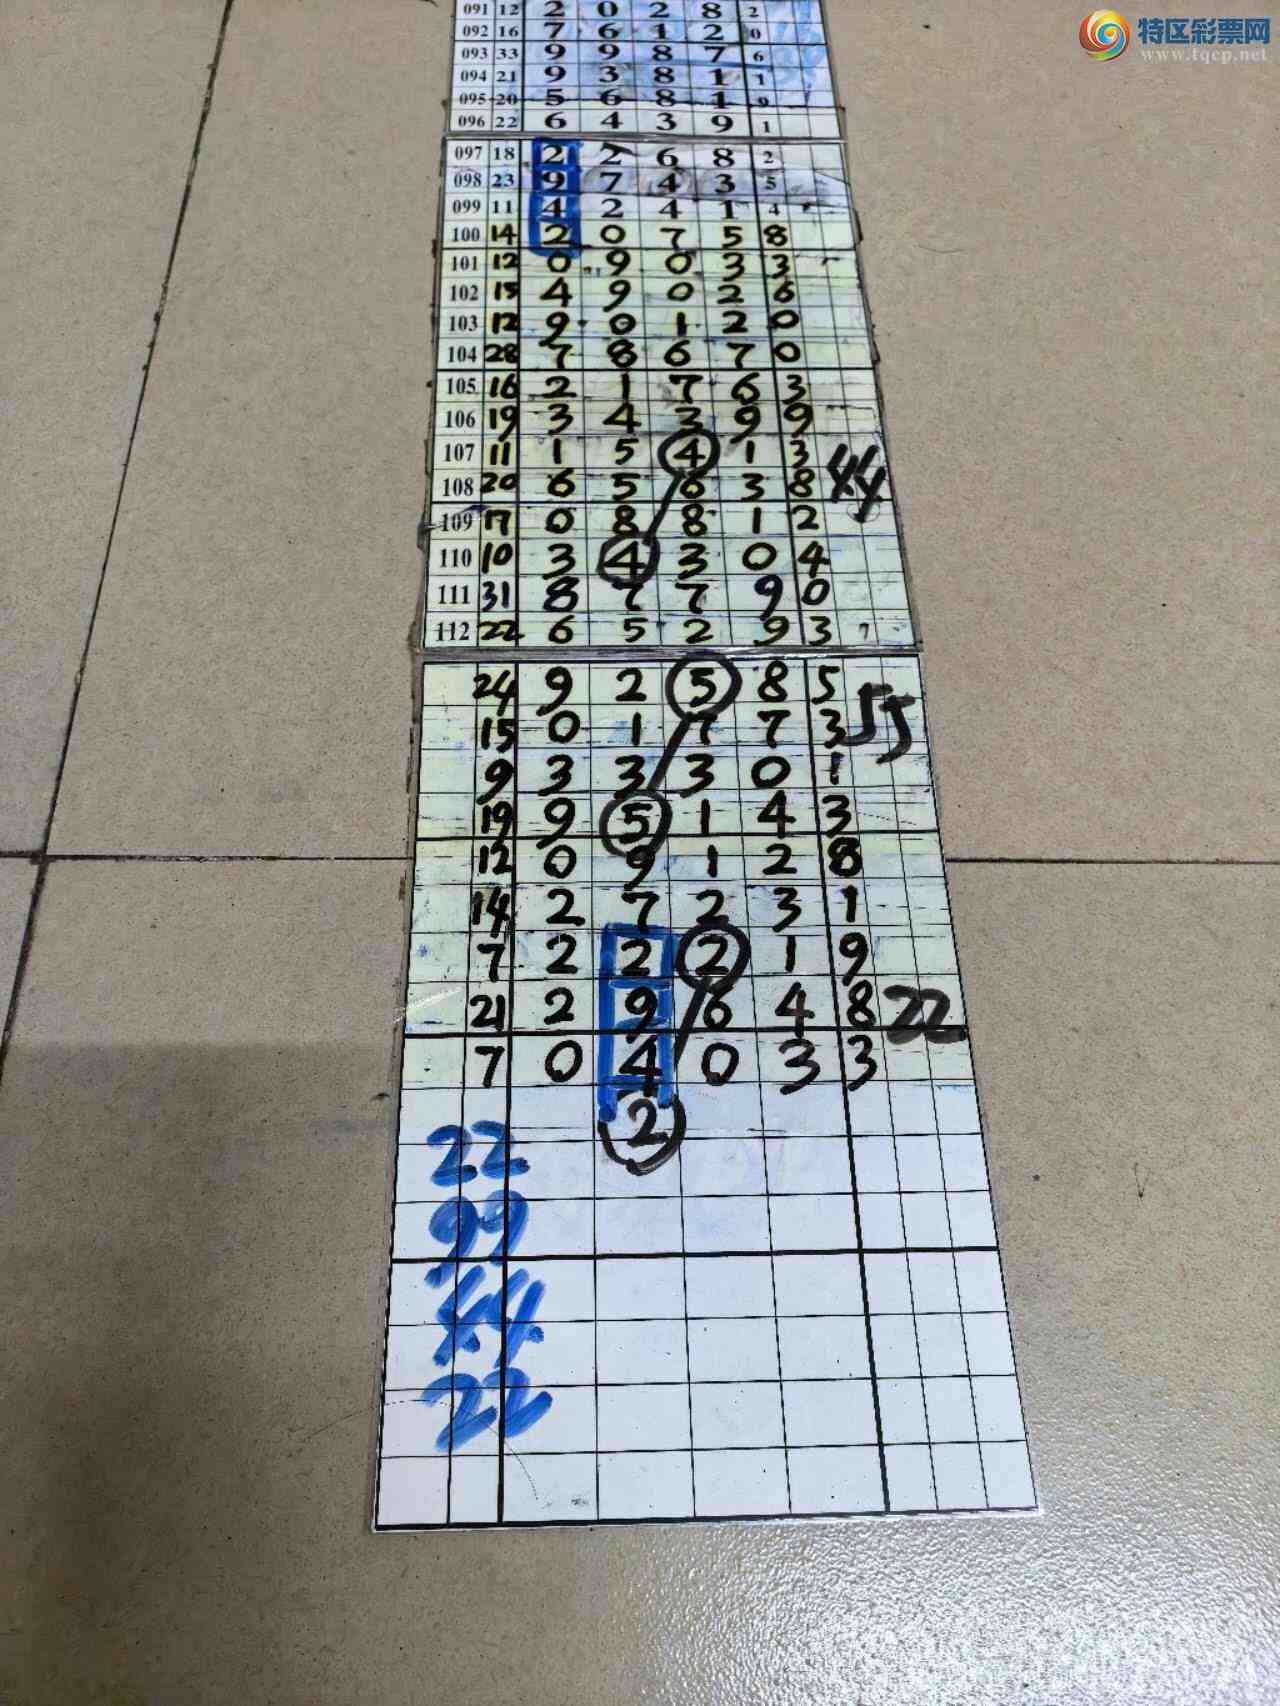 特区彩票网
www.tqcp.net
091 12 2 0 2 8 2
092 16 7 6 1 2 0
093 33 9 9 8 7 6
094 21 9 3 8 1 1
095 20 5 6 8 1 9
096 22 6 4 3 9 1
097 18 2 2 6 8 2
098 23 9 7 4 3 5
099 11 4 2 4 1 4
100 14 2 0 7 5 8
101 12 0 9 0 3 3
102 15 4 9 0 2 6
103 12 9 0 1 2 0
104 28 7 8 6 7 0
105 16 2 1 7 6 3
106 19 3 4 3 9 9
107 11 1 5 4 1 3
44
108 20 6 5 6 3 8
109 17 0 8 8 1 2
110 10 3 4 3 0 4
111 31 8 7 7 9 0
112 22 6 5 2 9 3
24 9 2 5 8 5
55
15 0 1 7 7 3
9 3 3 3 0 1
19 9 5 1 4 3
12 0 9 1 2 8
14 2 7 2 3 1
7 2 2 2 1 9
21 2 9 6 4 8 22
7 0 4 0 3 3
2
22
99
44
22